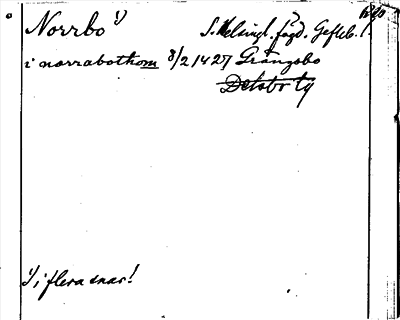 Norrbo 1) S. Helsingl. fögd. Gefleb. l.
i norrabothom 8/2 1427 Grångsbo
Delsbo tg
1) i flera snar!